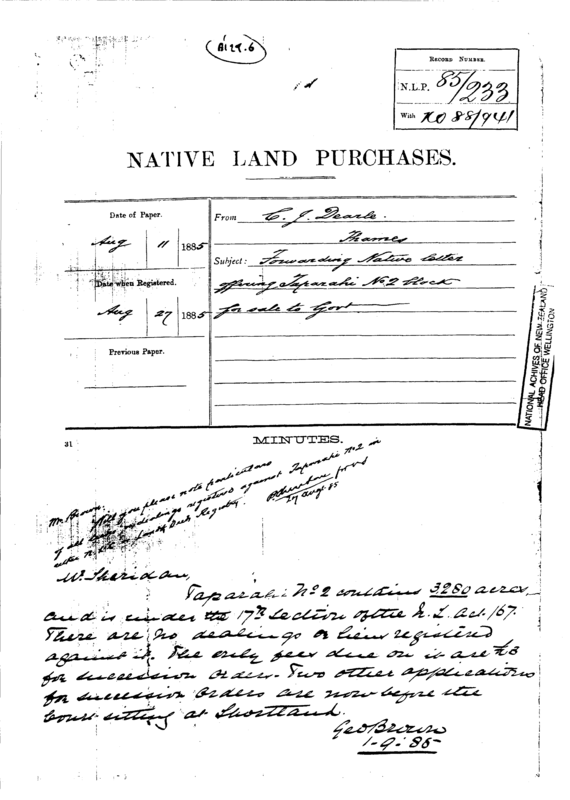 A129.6
RECORD NUMBER.
N.L.P. 85/233
With NO 88/941
NATIVE LAND PURCHASES.
Date of Paper.
Aug 11 1885
Date when Registered.
Aug 27 1885
Previous Paper.
From C. J. Dearle.
Thames
Subject: Forwarding Native letter
offering Taparahi No 2 block
for sale to Govt
NATIONAL ACHIVES OF NEW ZEALAND
HEAD OFFICE WELLINGTON
31
MINUTES.
Mr. Brown,
Will you please note particulars
of all dealings registered against Taparahi No 2 in
27 Aug. 85
Mr. Sheridan,
Taparahi No 2 contains 3280 acres,
and is under the 17th Section of the N. L. Act. /67.
There are no dealings or liens registered
against it. The only fees due on it are
for succession orders. Two other applications
for succession orders are now before the
Court sitting at Shortland.
Geo Brown
1-9-85